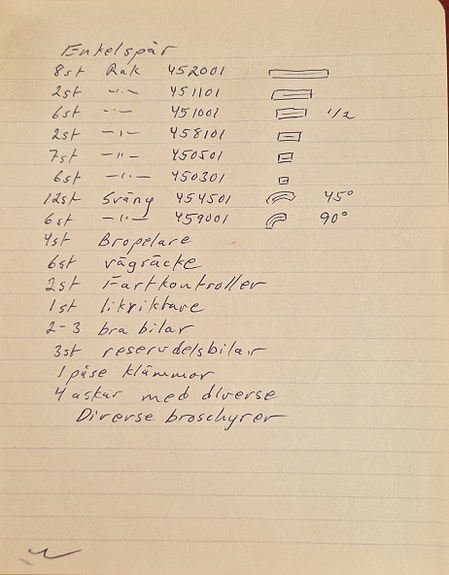 Enkelspår
8st Rak 452001
2st -"- 451101
6st -"- 451001 1/2
2st -"- 458101
7st -"- 450501
6st -"- 450301
12st Sväng 454501 45°
6st -"- 459001 90°
4st Bropelare
6st vägräcke
2st Fartkontroller
1st likriktare
2-3 bra bilar
3st reservdelsbilar
1 påse klämmor
4 askar med diverse
Diverse broschyrer